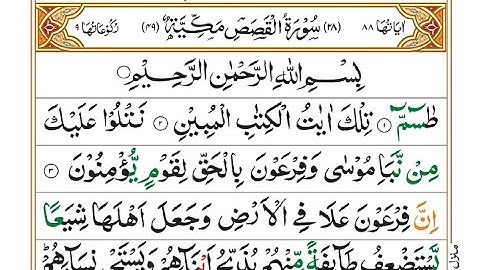 اٰیَاتُهَا ٨٨ (٢٨) سُوْرَةُ الْقَصَصِ مَكِّیَّةٌ (٤٩) رُكُوْعَاتُهَا ٩
بِسْمِ اللّٰهِ الرَّحْمٰنِ الرَّحِیْمِ
طٰسٓمّٓ ۝١ تِلْكَ اٰیٰتُ الْكِتٰبِ الْمُبِیْنِ ۝٢ نَتْلُوْا عَلَیْكَ
مِنْ نَّبَاِ مُوْسٰی وَ فِرْعَوْنَ بِالْحَقِّ لِقَوْمٍ یُّؤْمِنُوْنَ ۝٣
اِنَّ فِرْعَوْنَ عَلَا فِی الْاَرْضِ وَ جَعَلَ اَهْلَهَا شِیَعًا
یَّسْتَضْعِفُ طَآىِٕفَةً مِّنْهُمْ یُذَبِّحُ اَبْنَآءَهُمْ وَ یَسْتَحْیٖ نِسَآءَهُمْ